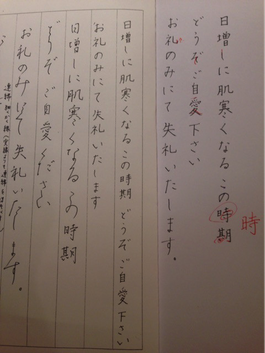 日増しに肌寒くなるこの時期
時
どうぞご自愛下さい
お礼のみにて失礼いたします。
日増しに肌寒くなるこの時期 どうぞご自愛下さい
お礼のみにて失礼いたします
日増しに肌寒くなるこの時期
どうぞご自愛ください
お礼のみにて失礼いたします。